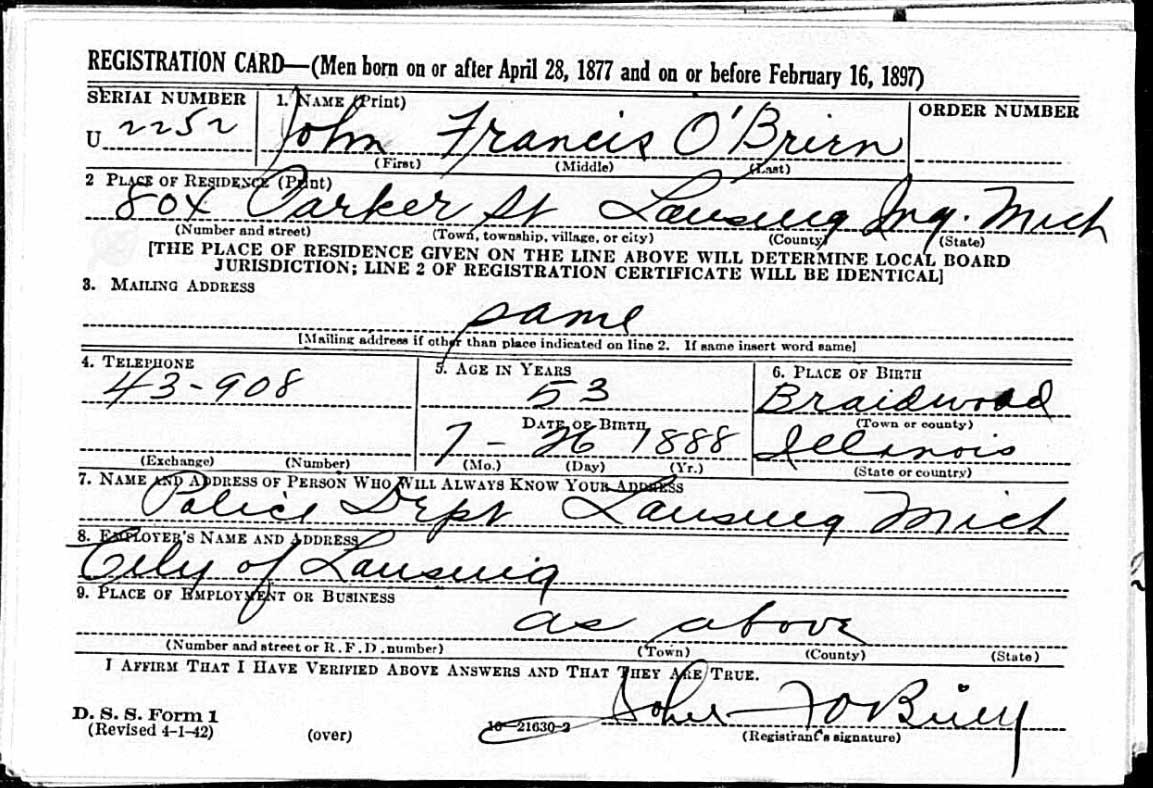 REGISTRATION CARD—(Men born on or after April 28, 1877 and on or before February 16, 1897)
SERIAL NUMBER 1. NAME (Print) ORDER NUMBER
U 2252 John Francis O'Brien
(First) (Middle) (Last)
2 PLACE OF RESIDENCE (Print)
804 Parker St Lansing Ing. Mich
(Number and street) (Town, township, village, or city) (County) (State)
[THE PLACE OF RESIDENCE GIVEN ON THE LINE ABOVE WILL DETERMINE LOCAL BOARD
JURISDICTION; LINE 2 OF REGISTRATION CERTIFICATE WILL BE IDENTICAL]
3. MAILING ADDRESS
same
[Mailing address if other than place indicated on line 2. If same insert word same]
4. TELEPHONE 5. AGE IN YEARS 6. PLACE OF BIRTH
43-908 53 Braidwood
DATE OF BIRTH (Town or county)
7-26 1888 Illinois
(Exchange) (Number) (Mo.) (Day) (Yr.) (State or country)
7. NAME AND ADDRESS OF PERSON WHO WILL ALWAYS KNOW YOUR ADDRESS
Police Dept Lansing Mich
8. EMPLOYER'S NAME AND ADDRESS
City of Lansing
9. PLACE OF EMPLOYMENT OR BUSINESS
as above
(Number and street or R.F.D. number) (Town) (County) (State)
I AFFIRM THAT I HAVE VERIFIED ABOVE ANSWERS AND THAT THEY ARE TRUE.
John F O'Brien
D. S. S. Form 1
(Revised 4-1-42) (over) 16—21630-2 (Registrant's signature)